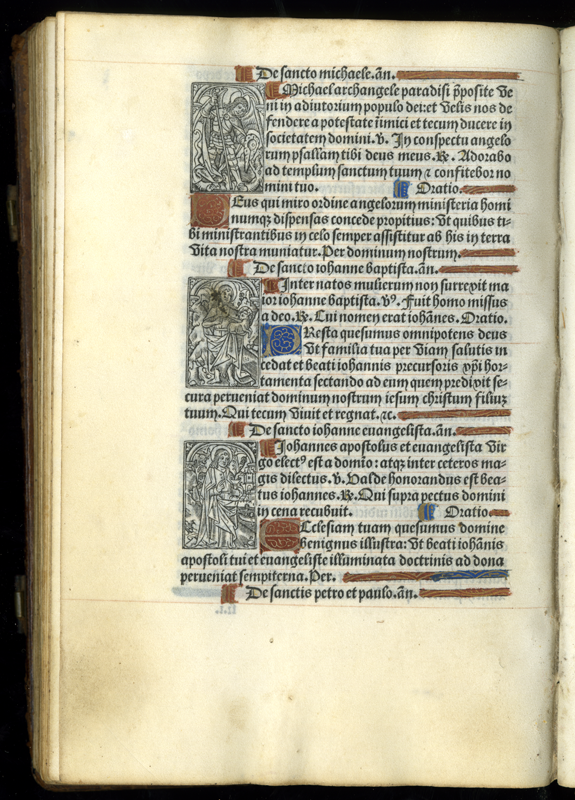 De sancto michaele. añ.
Michael archangele paradisi p̄posite ve
ni in adiutorium populo dei: et velis nos de
fendere a potestate iīmici et tecum ducere in
societatem domini. v̄. In conspectu angelo
rum psallam tibi deus meus. ℞. Adorabo
ad templum sanctum tuum ⁊ confitebor no
mini tuo. Oratio.
Deus qui miro ordine angelorum ministeria homi
numqꝫ dispensas concede propitius: vt quibus ti-
bi ministrantibus in celo semper assistitur ab his in terra
vita nostra muniatur. Per dominum nostrum.
De sancto iohanne baptista. añ.
Inter natos mulierum non surrexit ma
ior iohanne baptista. v̄ꝰ. Fuit homo missus
a deo. ℞. Cui nomen erat iohānes. Oratio.
PResta quesumus omnipotens deus
vt familia tua per viam salutis in
cedat et beati iohannis precursoris xp̄i hor-
tamenta sectando ad eum quem predixit se-
cura perueniat dominum nostrum iesum christum filiuꝫ
tuum. Qui tecum viuit et regnat. ⁊c.
De sancto iohanne euangelista. añ.
Iohannes apostolus et euangelista vir
go electꝰ est a domīo: atqꝫ inter ceteros ma-
gis dilectus. v̄. Valde honorandus est bea-
tus iohannes. ℞. Qui supra pectus domini
in cena recubuit. Oratio.
ECclesiam tuam quesumus domine
benignus illustra: vt beati iohānis
apostoli tui et euangeliste illuminata doctrinis ad dona
perueniat sempiterna. Per.
De sanctis petro et paulo. añ.